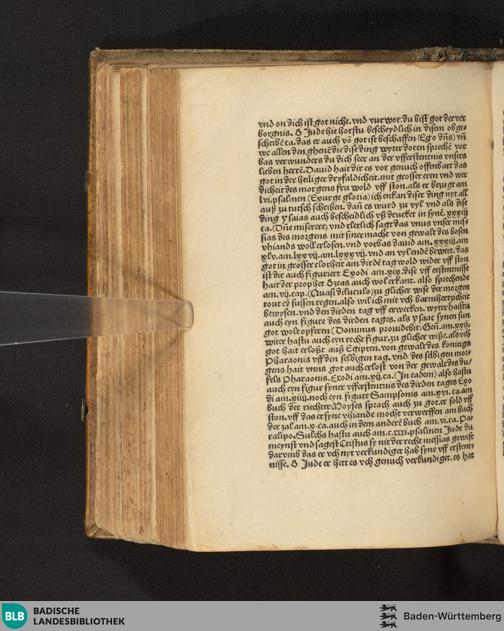 vnd on dich ist got nicht. vnd vurwor. du bist got der ver
borgnis. O Jude hit horstu bescheydlich in disem obge
schribē ca. das er auch vō got ist beschaffen (Ego dn̄s) vn̄
we allen den ghenē die dise ding wyter doren sprechē vor
bas verwunders du dich seer an der vfferstentnis vnsers
lieben herrē. Dauid hait dir es vor genuch offenbart das
got in der heiliger dryfaldicheit. mit grosser eren vnd wer
dicheit des morgens fru wold vff ston. als er bezugt am
lvi. psalmen (Exurge gloria) ich enkan diser ding nyt all
auß zu tutsch schriben. dan̄ es wurd zu vyl vnd als dise
ding ysaias auch bescheidlich vß drucket in synē. xxxiij
ca. (Dn̄e miserere) vnd clerlich sagt das vnus vnser mes
sias des morgens mit siner macht von gewalt des bosen
vhiands wolt erlosen. vnd vorbas dauid am. xxxiij. am
xlv. am. lxxvij. am. lxxxvij. vnd an vyl endē bewert. das
got in grosser clorheit am dirdē tag wold wider vff ston
ist dir auch figuriert Exodi am. xix. dise vff erstentnisse
hait der prophet Oxeas auch wol erkant. also sprechende
am. vij. cap. (Quasi diluculo) zu glicher wise der morgen
tout ey sussen regen. also wil ich mit vch barmhertzicheit
bewysen. vnd den dirden tag vff erwecken. wyter hastu
auch eyn figure des dirden tages. als ysaac synen sun
got wolt opfferen (Dominus prouidebit. Gen. am. xxij.
witer hastu auch eyn recht figur. zu glicher wiße. als vch
got hait erloßt auß Egipten. von gewalt des konings
Pharaonis vff den selbigen tag. vnd des selbigen mor
gens hait vnns got auch erlost von der gewalt des du/
fels Pharaonis. Exodi am. xij. ca. (In eadem) also hastu
auch eyn figur syner vfferstentnis des dirden tages Exo
di am. xiiij. noch eyn figure Sampsonis am. xvi. ca. am
buch der riechter. Moyses sprach auch zu got. er sold vff
ston. vff das er syne vhiande mocht verwerffen am buch
der zal am. x. ca. auch in dem anderē buch am. vi. ca. Par
ralipo. Sulchs hastu auch am. c. xxxi. psalmen Jude du
meynst vnd sagest Cristus sy nit der recht messias gewest
darumb das er vch nyt verkundiget hab syne vff erstent
nisse. O Jude er hett es vch genuch verkundiget. es hat
BLB
BADISCHE
LANDESBIBLIOTHEK
Baden-Württemberg